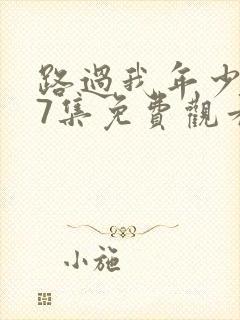 路過我年少
7集免費觀
小施